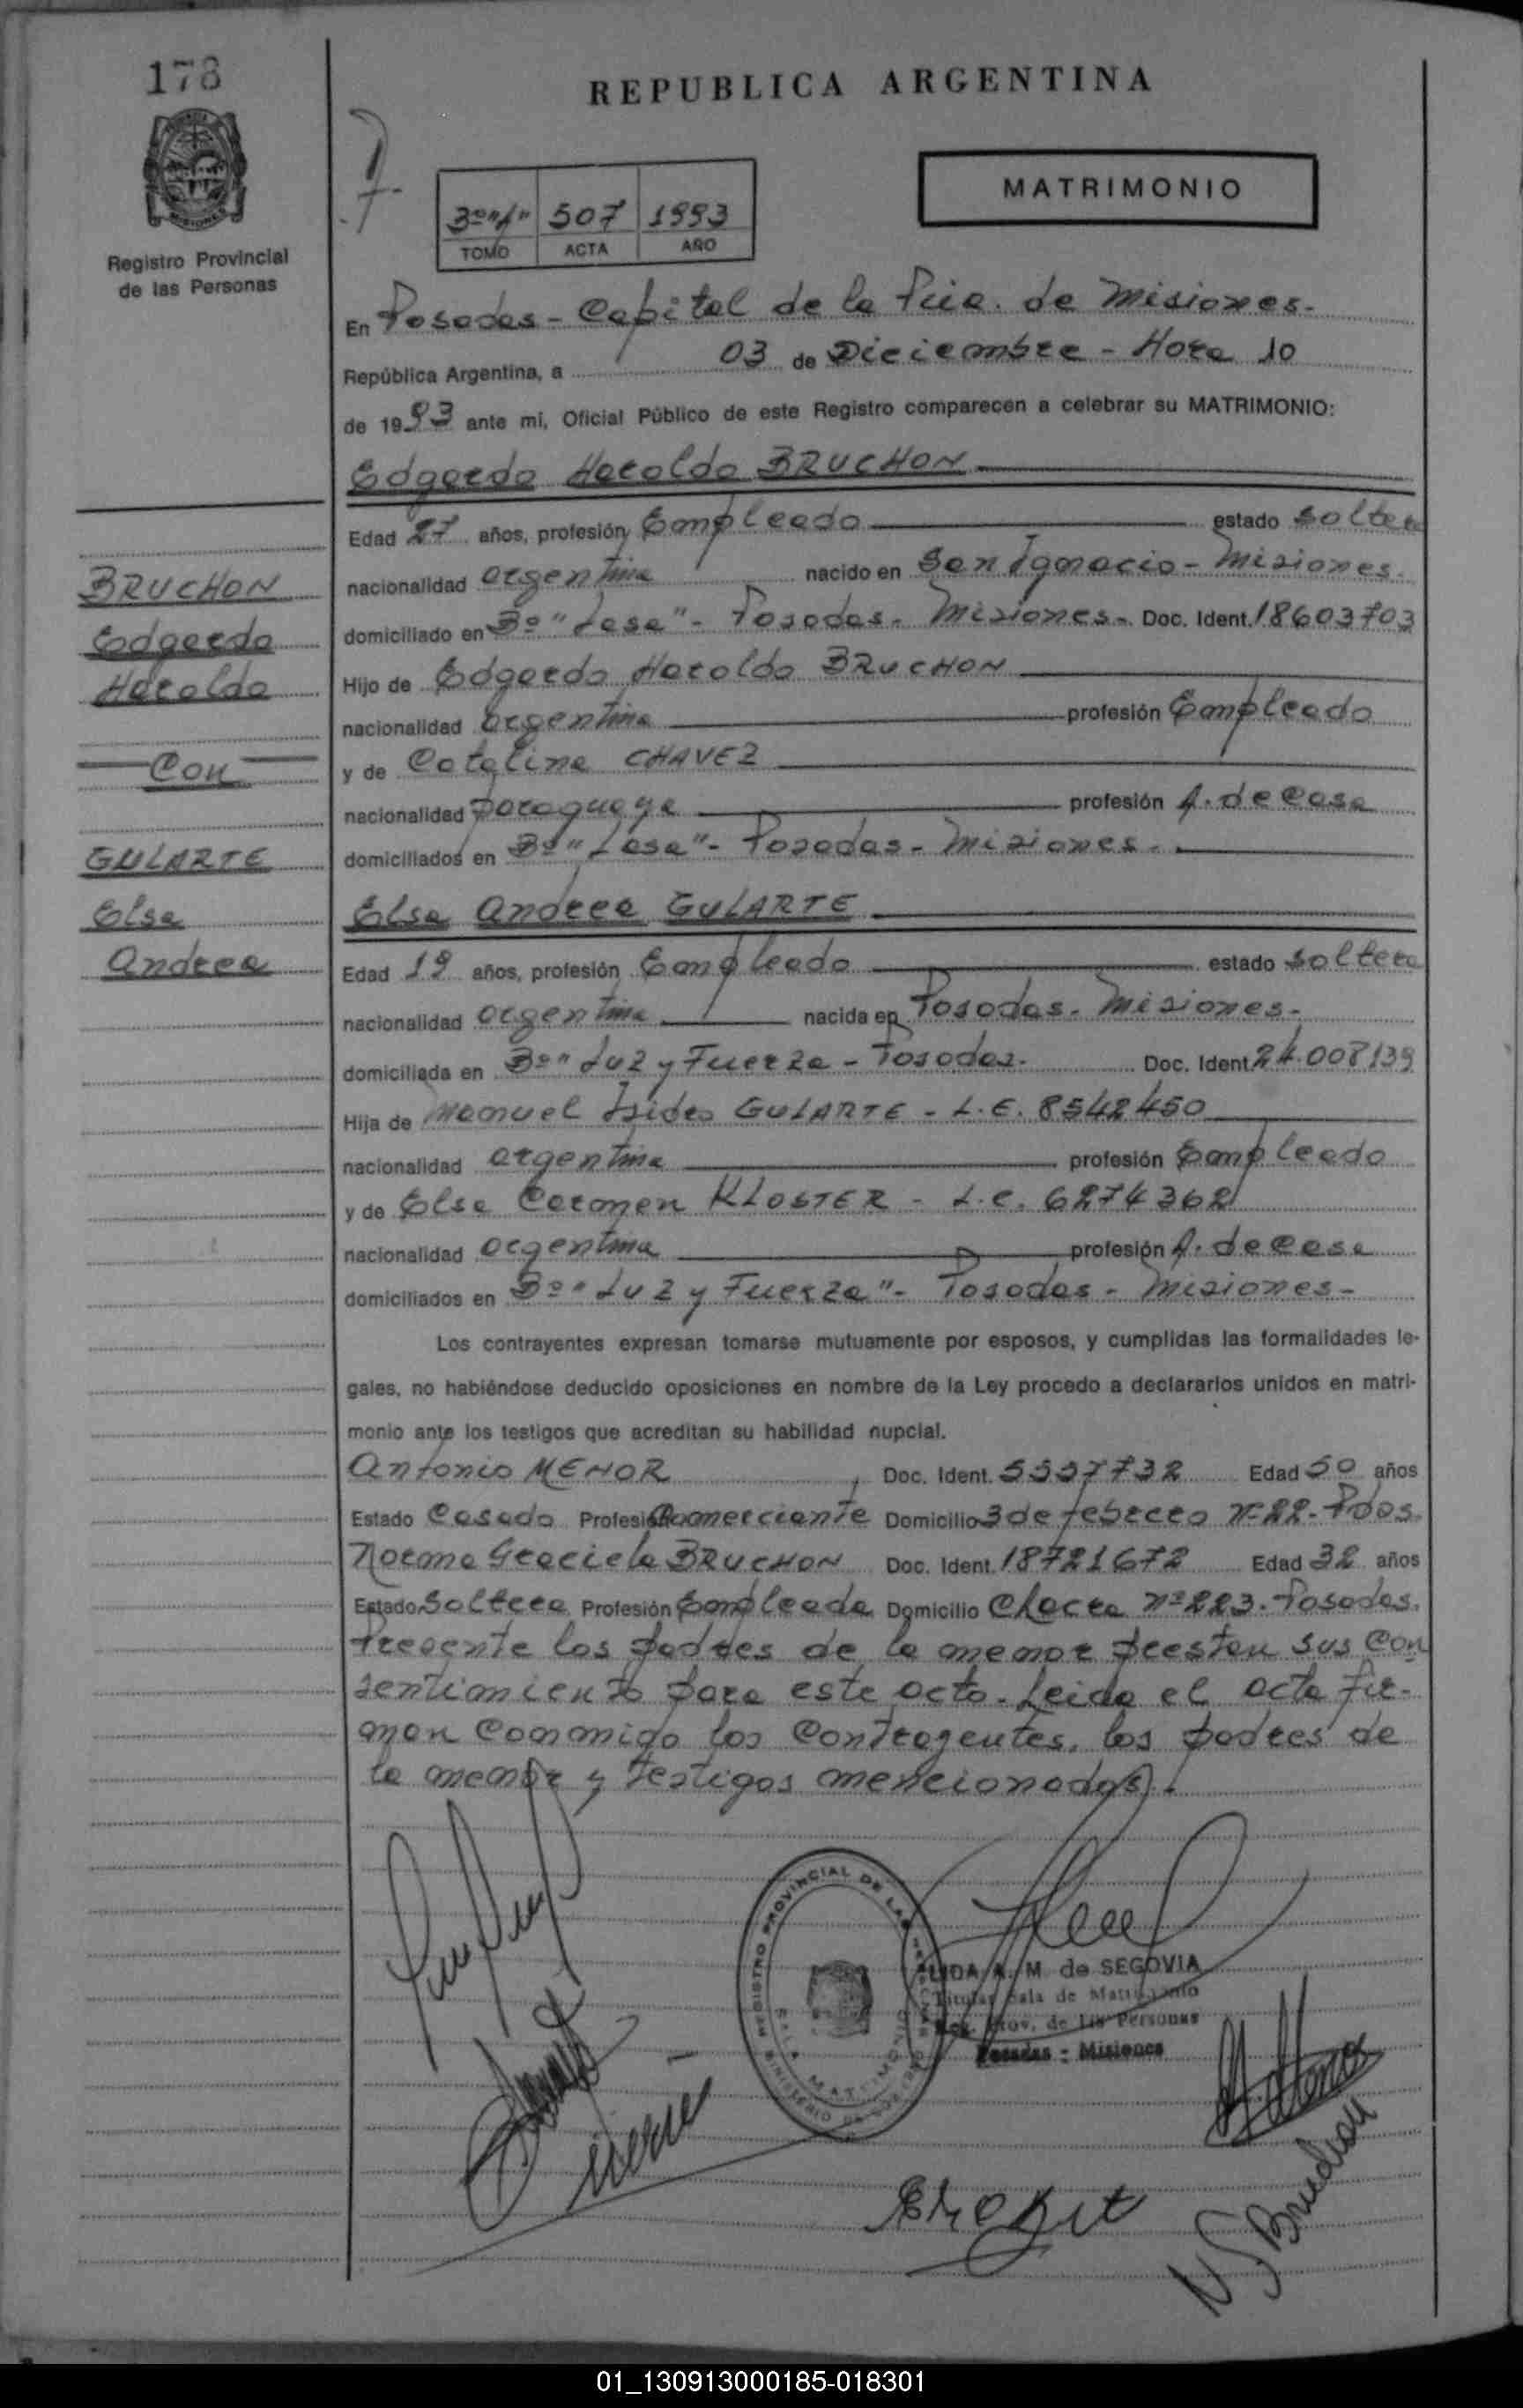 178
REPUBLICA ARGENTINA
MATRIMONIO
3º "A" 507 1993
TOMO ACTA AÑO
Registro Provincial
de las Personas
En Posadas - Capital de la Pcia. de Misiones.
República Argentina, a 03 de Diciembre - Hora 10
de 1993 ante mi, Oficial Público de este Registro comparecen a celebrar su MATRIMONIO:
Edgardo Haroldo BRUCHON
Edad 27 años, profesión Empleado estado soltero
nacionalidad argentina nacido en San Ignacio - Misiones.
domiciliado en Bº "Lasa" - Posadas - Misiones - Doc. Ident. 18603703
Hijo de Edgardo Haroldo BRUCHON
nacionalidad argentina profesión Empleado
y de Catalina CHAVEZ
nacionalidad paraguaya profesión A. de Casa
domiciliados en Bº "Lasa" - Posadas - Misiones.
Elsa Andrea GULARTE
Edad 19 años, profesión Empleada estado soltera
nacionalidad argentina nacida en Posadas - Misiones.
domiciliada en Bº "Luz y Fuerza - Posadas. Doc. Ident. 24.008139
Hija de Manuel Isidro GULARTE - L.E. 8542450
nacionalidad argentina profesión Empleado
y de Elsa Carmen KLOSTER - L.C. 6274362
nacionalidad argentina profesión A. de Casa
domiciliados en Bº "Luz y Fuerza" - Posadas - Misiones -
Los contrayentes expresan tomarse mutuamente por esposos, y cumplidas las formalidades le-
gales, no habiéndose deducido oposiciones en nombre de la Ley procedo a declararlos unidos en matri-
monio ante los testigos que acreditan su habilidad nupcial.
Antonio MENOR Doc. Ident. 5527732 Edad 50 años
Estado Casado Profesión Comerciante Domicilio 3 de febrero Nº 22 - Pdas.
Norma Graciela BRUCHON Doc. Ident. 18721672 Edad 32 años
Estado Soltera Profesión Empleada Domicilio Chacra Nº 223 - Posadas.
Presente los padres de la menor prestan sus con
sentimiento para este acto. Leida el acta fir-
man conmigo los contrayentes, los padres de
la menor y testigos mencionados.
BRUCHON
Edgardo
Haroldo
Con
GULARTE
Elsa
Andrea
REGISTRO PROVINCIAL DE LAS PERSONAS
SALA MATRIMONIO
LIDA A. M. de SEGOVIA
Titular Sala de Matrimonio
Reg. Prov. de las Personas
Posadas - Misiones
N G Bruchon
01_130913000185-018301